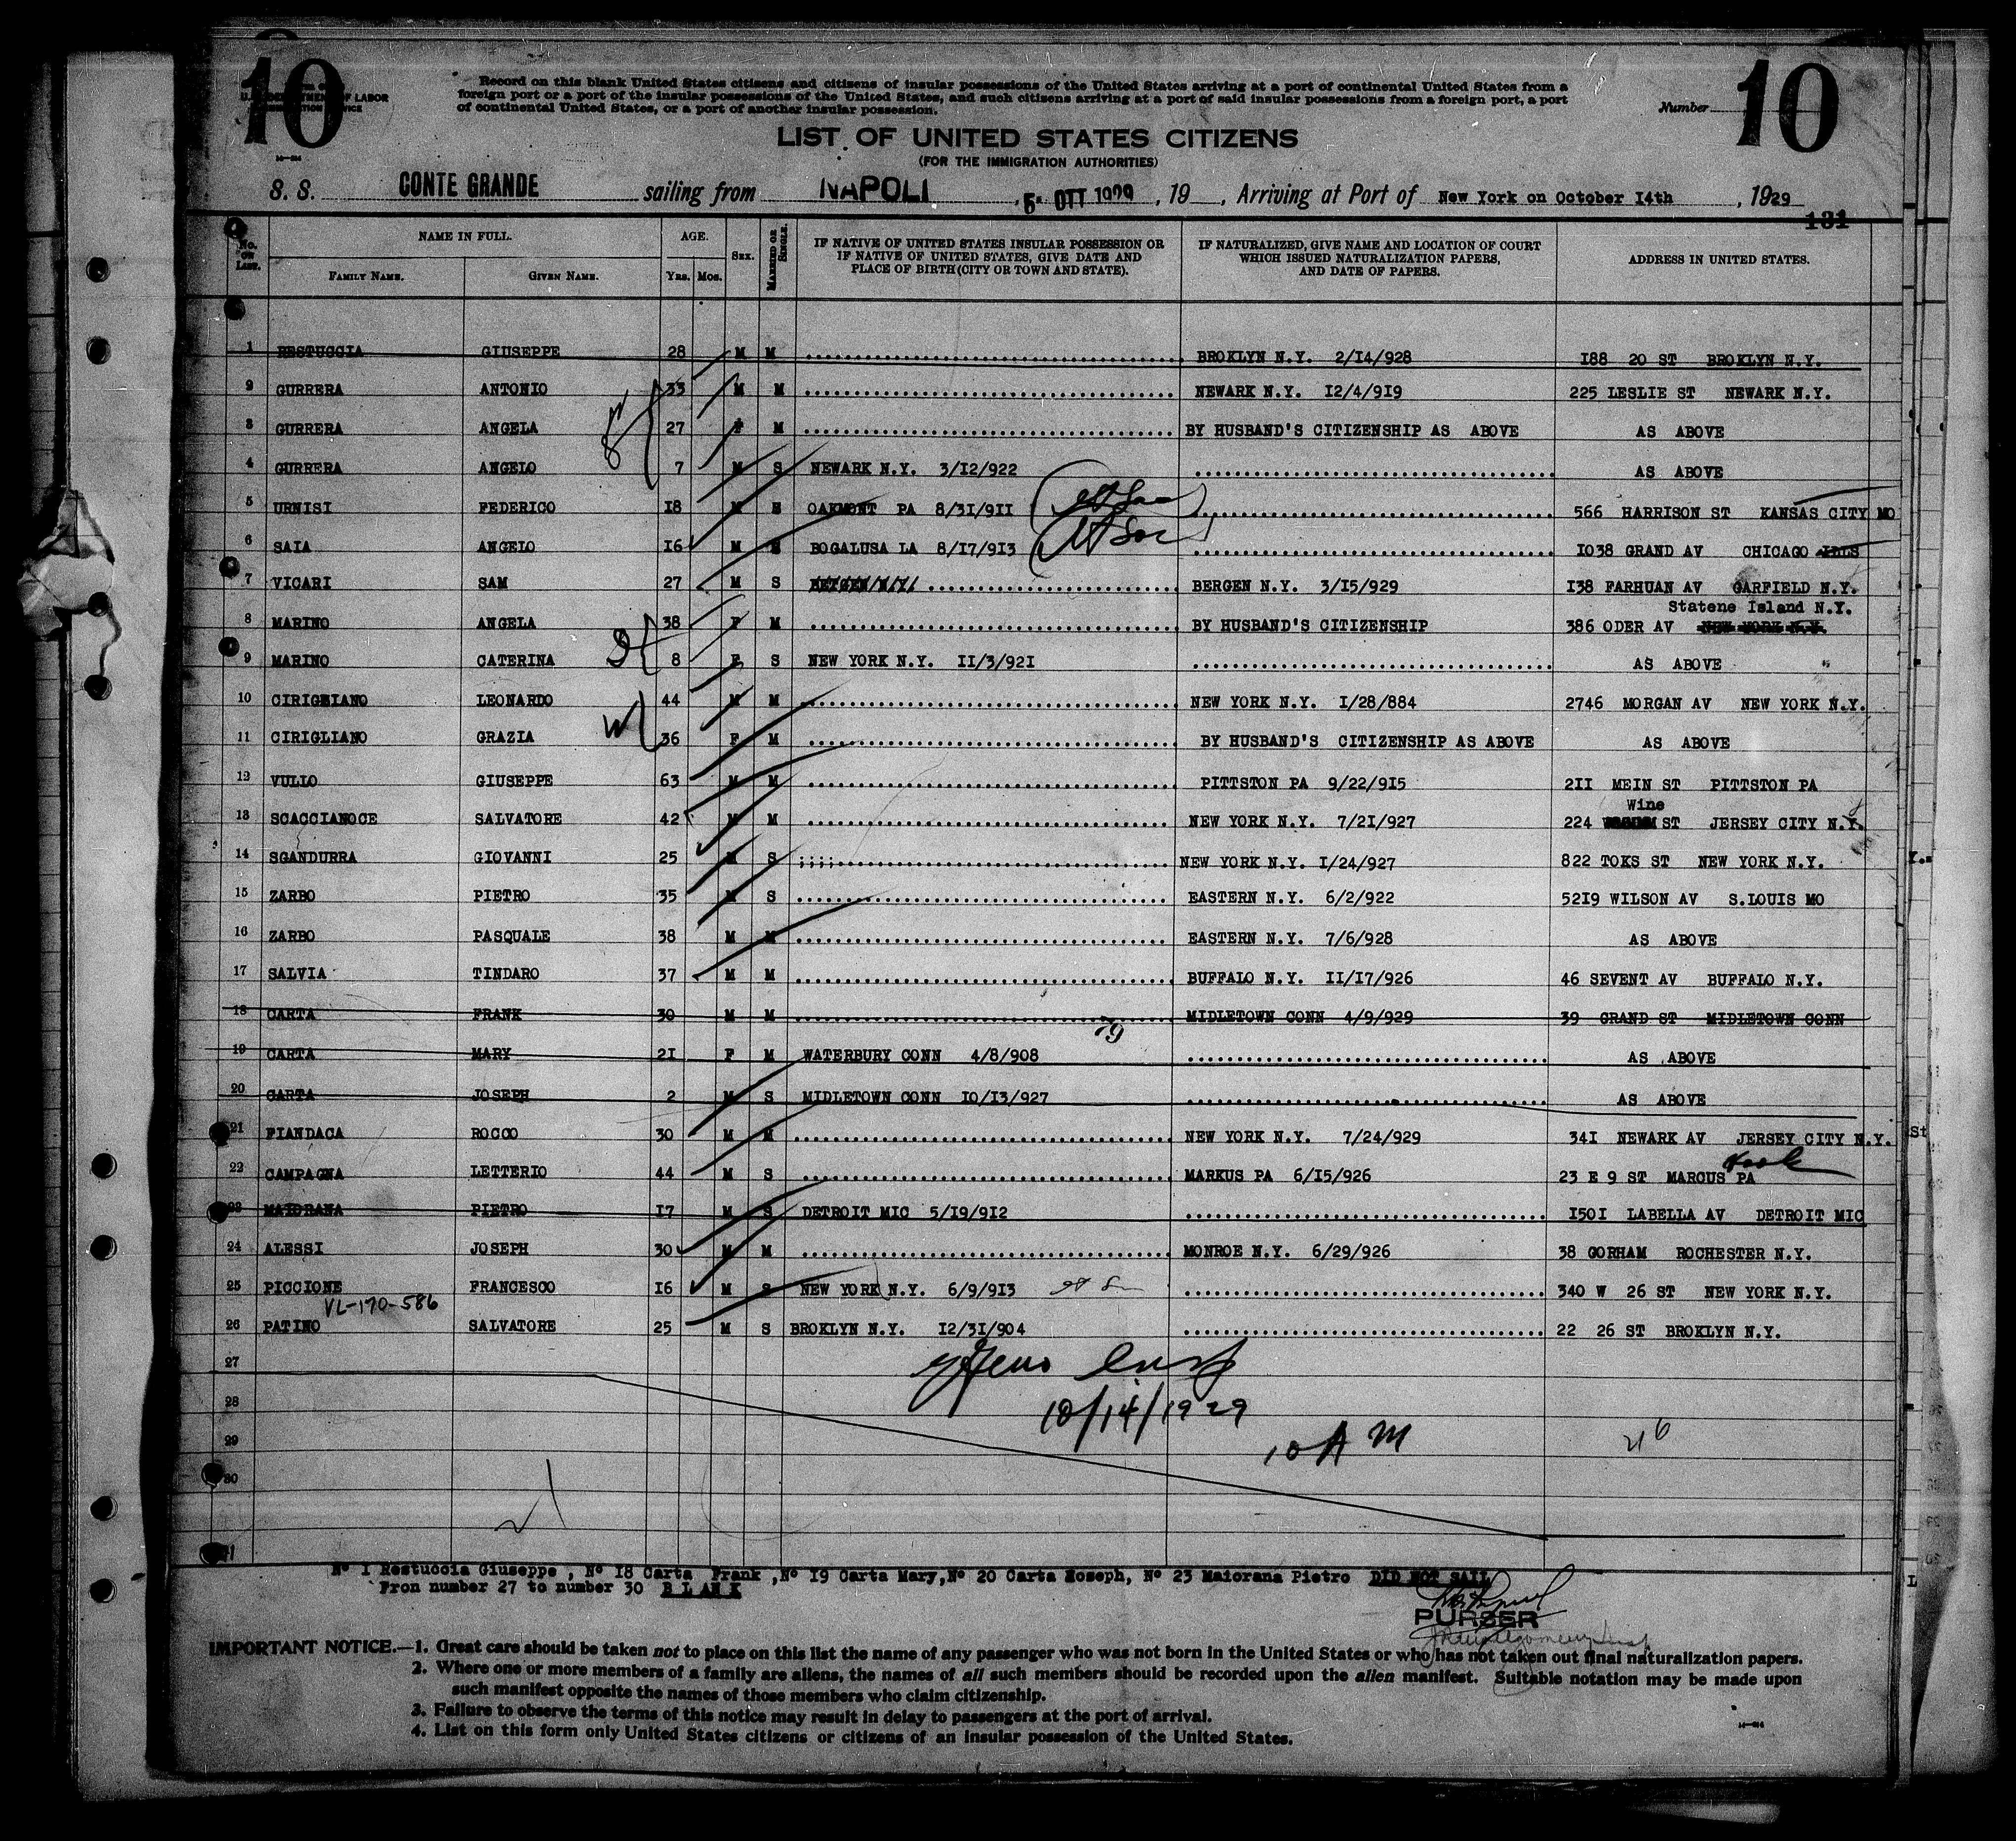 10
U. S. DEPARTMENT OF LABOR
IMMIGRATION SERVICE
Record on this blank United States citizens and citizens of insular possessions of the United States arriving at a port of continental United States from a
foreign port or a port of the insular possessions of the United States, and such citizens arriving at a port of said insular possessions from a foreign port, a port
of continental United States, or a port of another insular possession.
Number 10
LIST OF UNITED STATES CITIZENS
(FOR THE IMMIGRATION AUTHORITIES)
S. S. CONTE GRANDE sailing from NAPOLI , 5- OTT 1929 , 19 , Arriving at Port of New York on October 14th , 1929
131
No. on List. NAME IN FULL. AGE. Sex. Married or Single. IF NATIVE OF UNITED STATES INSULAR POSSESSION OR IF NATIVE OF UNITED STATES, GIVE DATE AND PLACE OF BIRTH (CITY OR TOWN AND STATE). IF NATURALIZED, GIVE NAME AND LOCATION OF COURT WHICH ISSUED NATURALIZATION PAPERS, AND DATE OF PAPERS. ADDRESS IN UNITED STATES.
Family Name. Given Name. Yrs. Mos.
1 RESTUCCIA GIUSEPPE 28 M M BROKLYN N.Y. 2/14/928 188 20 ST BROKLYN N.Y.
2 GURRERA ANTONIO 33 M M NEWARK N.Y. 12/4/919 225 LESLIE ST NEWARK N.Y.
3 GURRERA ANGELA 27 F M BY HUSBAND'S CITIZENSHIP AS ABOVE AS ABOVE
4 GURRERA ANGELO 7 M S NEWARK N.Y. 3/12/922 AS ABOVE
5 URNISI FEDERICO 18 M S OAKMONT PA 8/31/911 566 HARRISON ST KANSAS CITY MO
6 SAIA ANGELO 16 M BOGALUSA LA 8/17/913 1038 GRAND AV CHICAGO ILLS
7 VICARI SAM 27 M S BERGEN N.Y. 3/15/929 138 FARHUAN AV GARFIELD N.Y.
Statene Island N.Y.
8 MARINO ANGELA 38 F M BY HUSBAND'S CITIZENSHIP 386 ODER AV NEW YORK N.Y.
9 MARINO CATERINA 8 F S NEW YORK N.Y. 11/3/921 AS ABOVE "
10 CIRIGLIANO LEONARDO 44 M M NEW YORK N.Y. 1/28/884 2746 MORGAN AV NEW YORK N.Y.
11 CIRIGLIANO GRAZIA 36 F M BY HUSBAND'S CITIZENSHIP AS ABOVE AS ABOVE
12 VULLO GIUSEPPE 63 M M PITTSTON PA 9/22/915 211 MEIN ST PITTSTON PA
Wine
13 SCACCIANOCE SALVATORE 42 M M NEW YORK N.Y. 7/21/927 224 ST JERSEY CITY N.Y.
14 SGANDURRA GIOVANNI 25 M S ;;;; NEW YORK N.Y. 1/24/927 822 TOKS ST NEW YORK N.Y.
15 ZARBO PIETRO 35 M S EASTERN N.Y. 6/2/922 5219 WILSON AV S.LOUIS MO
16 ZARBO PASQUALE 38 M M EASTERN N.Y. 7/6/928 AS ABOVE
17 SALVIA TINDARO 37 M M BUFFALO N.Y. 11/17/926 46 SEVENT AV BUFFALO N.Y.
18 CARTA FRANK 30 M M MIDLETOWN CONN 4/9/929 39 GRAND ST MIDLETOWN CONN
19 CARTA MARY 21 F M WATERBURY CONN 4/8/908 AS ABOVE
20 CARTA JOSEPH 2 M S MIDLETOWN CONN 10/13/927 AS ABOVE
21 FIANDACA ROCCO 30 M M NEW YORK N.Y. 7/24/929 341 NEWARK AV JERSEY CITY N.Y.
22 CAMPAGNA LETTERIO 44 M S MARKUS PA 6/15/926 23 E 9 ST MARCUS Hook PA
23 MAIORANA PIETRO 17 M S DETROIT MIC 5/19/912 1501 LABELLA AV DETROIT MIC
24 ALESSI JOSEPH 30 M M MONROE N.Y. 6/29/926 38 GORHAM ROCHESTER N.Y.
25 PICCIONE FRANCESCO 16 M S NEW YORK N.Y. 6/9/913 340 W 26 ST NEW YORK N.Y.
VL-170-586
26 PATINO SALVATORE 25 M S BROKLYN N.Y. 12/31/904 22 26 ST BROKLYN N.Y.
27
28 10/14/1929
29 10 A M
30
Nº 1 Restuccia Giuseppe , Nº 18 Carta Frank ,Nº 19 Carta Mary,Nº 20 Carta Hoseph, Nº 23 Maiorana Pietro DID NOT SAIL
Fron number 27 to number 30 B L A N K
PURSER
IMPORTANT NOTICE.—1. Great care should be taken not to place on this list the name of any passenger who was not born in the United States or who has not taken out final naturalization papers.
2. Where one or more members of a family are aliens, the names of all such members should be recorded upon the alien manifest. Suitable notation may be made upon
such manifest opposite the names of those members who claim citizenship.
3. Failure to observe the terms of this notice may result in delay to passengers at the port of arrival.
4. List on this form only United States citizens or citizens of an insular possession of the United States.